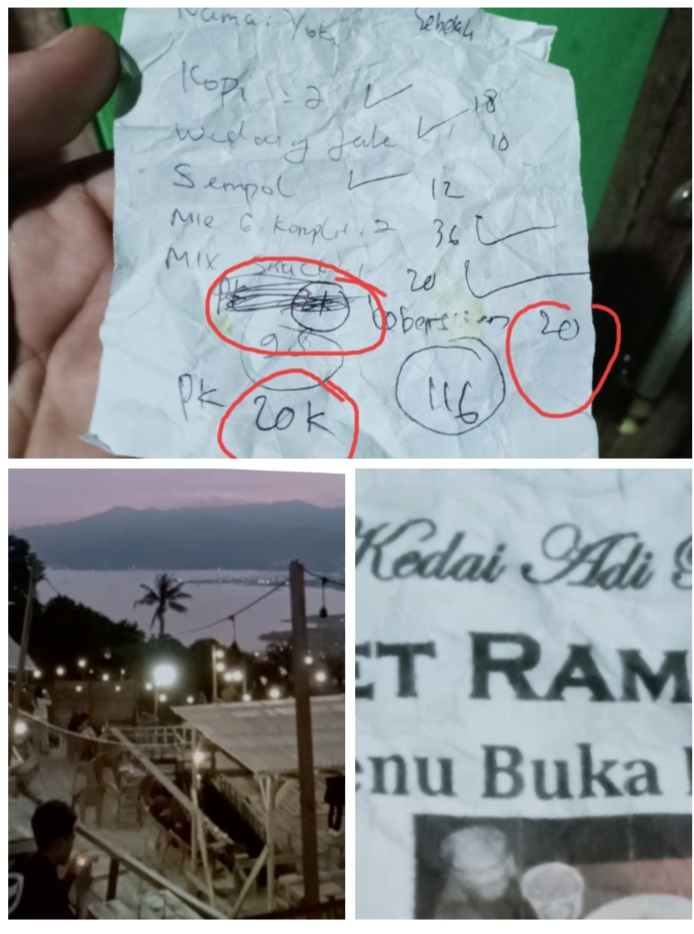 Nama: Yoki Sebelah
Kopi - 2 18
Wedang Jahe 10
Sempol 12
Mie G. Komplit. 2 36
Mix Snack 20
20
98
116
PK 20K
Kedai Adi
ET RAM
enu Buka